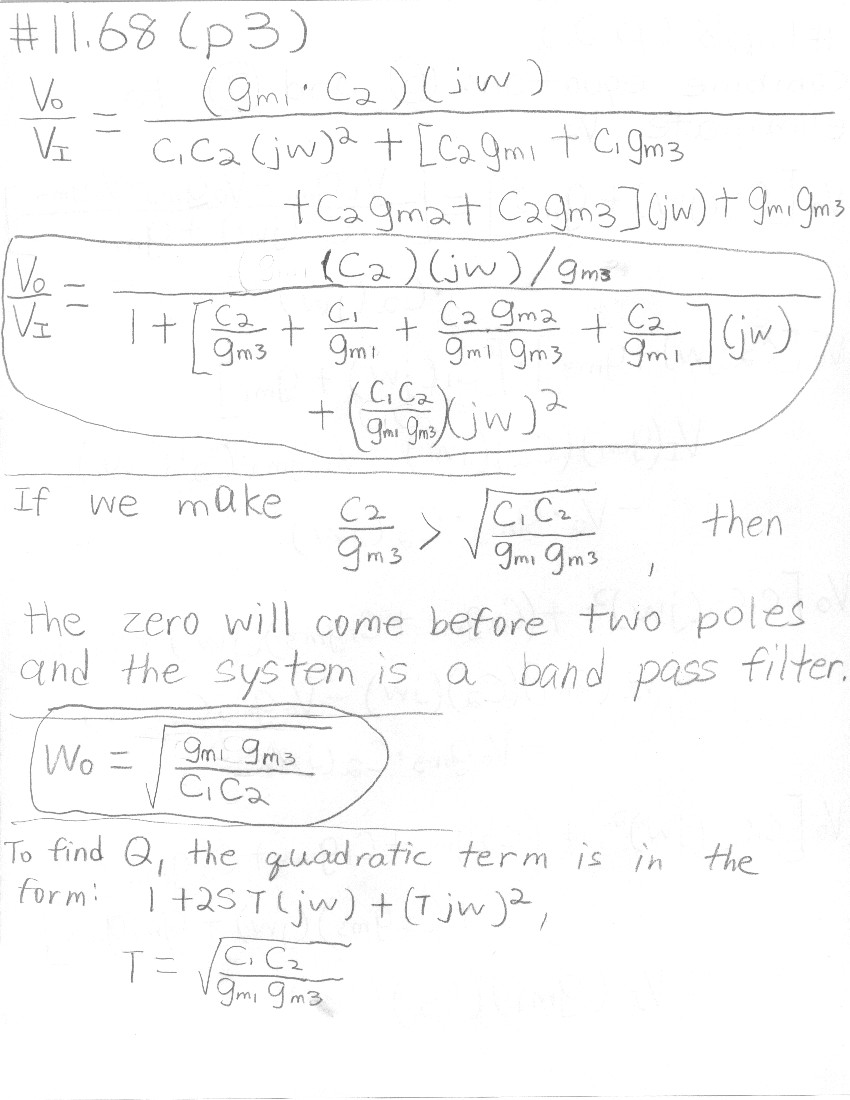 #11.68 (p3)
Vo/VI = (gm1 · C2)(jw) / C1C2(jw)² + [C2gm1 + C1gm3
+C2gm2 + C2gm3](jw) + gm1gm3
Vo/VI = (C2)(jw)/gm3 / 1 + [C2/gm3 + C1/gm1 + C2 gm2/gm1 gm3 + C2/gm1](jw)
+ (C1C2/gm1 gm3)(jw)²
If we make C2/gm3 > √(C1C2/gm1 gm3), then
the zero will come before two poles
and the system is a band pass filter.
Wo = √(gm1 gm3/C1C2)
To find Q, the quadratic term is in the
form: 1+2ST(jw) + (Tjw)²,
T = √(C1C2/gm1 gm3)